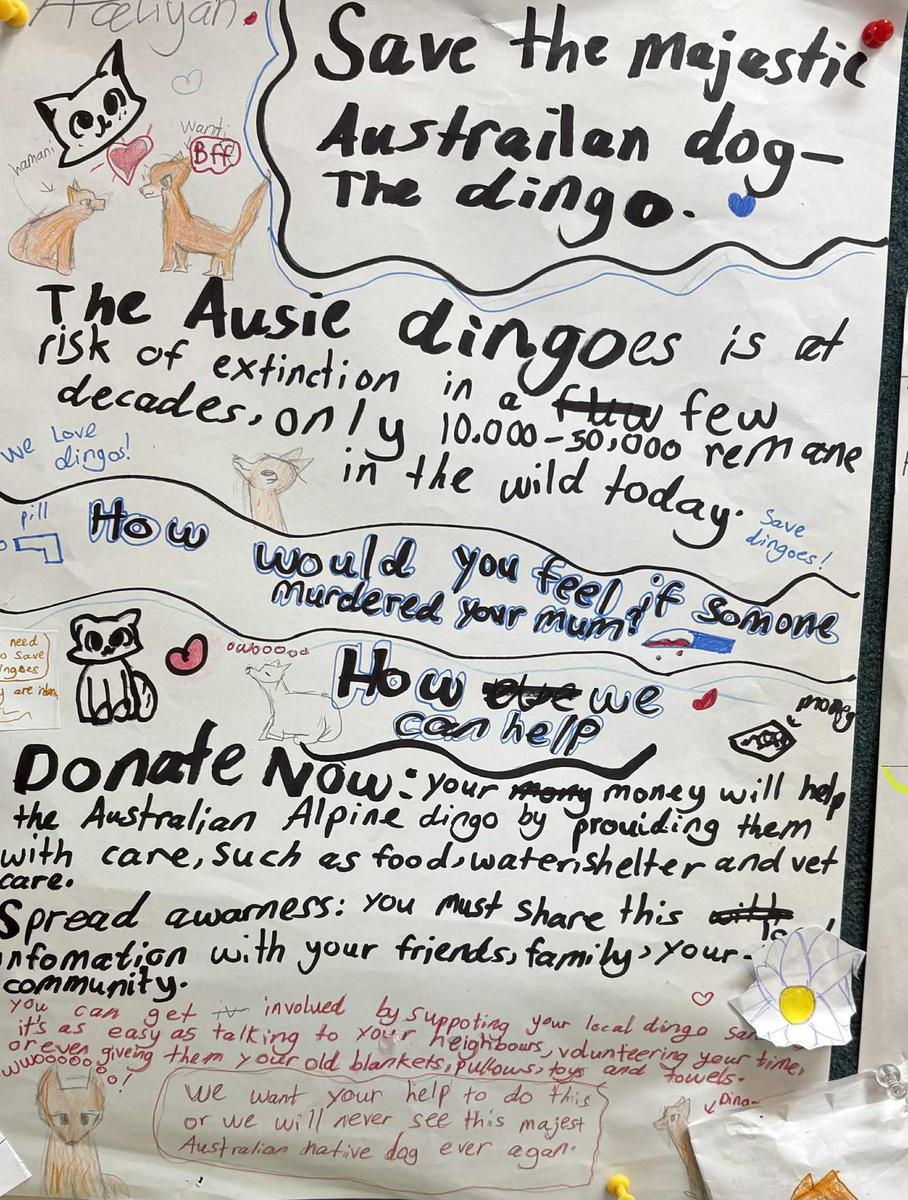 Save the majestic
Austrailan dog-
The dingo.
wanti
Bff
hamani
The Ausie dingoes is at
risk of extinction in a few
decades, only 10.000-50,000 remane
in the wild today.
We Love
dingos!
Save
dingoes!
pill
How would you feel if somone
murdered your mum?
need
to save
ingoes
y are
owooooo
How we
can help
money
Donate Now: your money will help
the Australian Alpine dingo by prouiding them
with care, such as food, water, shelter and vet
care.
Spread awarness: you must share this
infomation with your friends, family, your
community.
you can get involved by suppoting your local dingo
it's as easy as talking to your neighbours, volunteering your time,
or even giveing them your old blankets, pullows, toys and towels.
wwooooooo!
We want your help to do this
or we will never see this majest
Australian native dog ever agan.